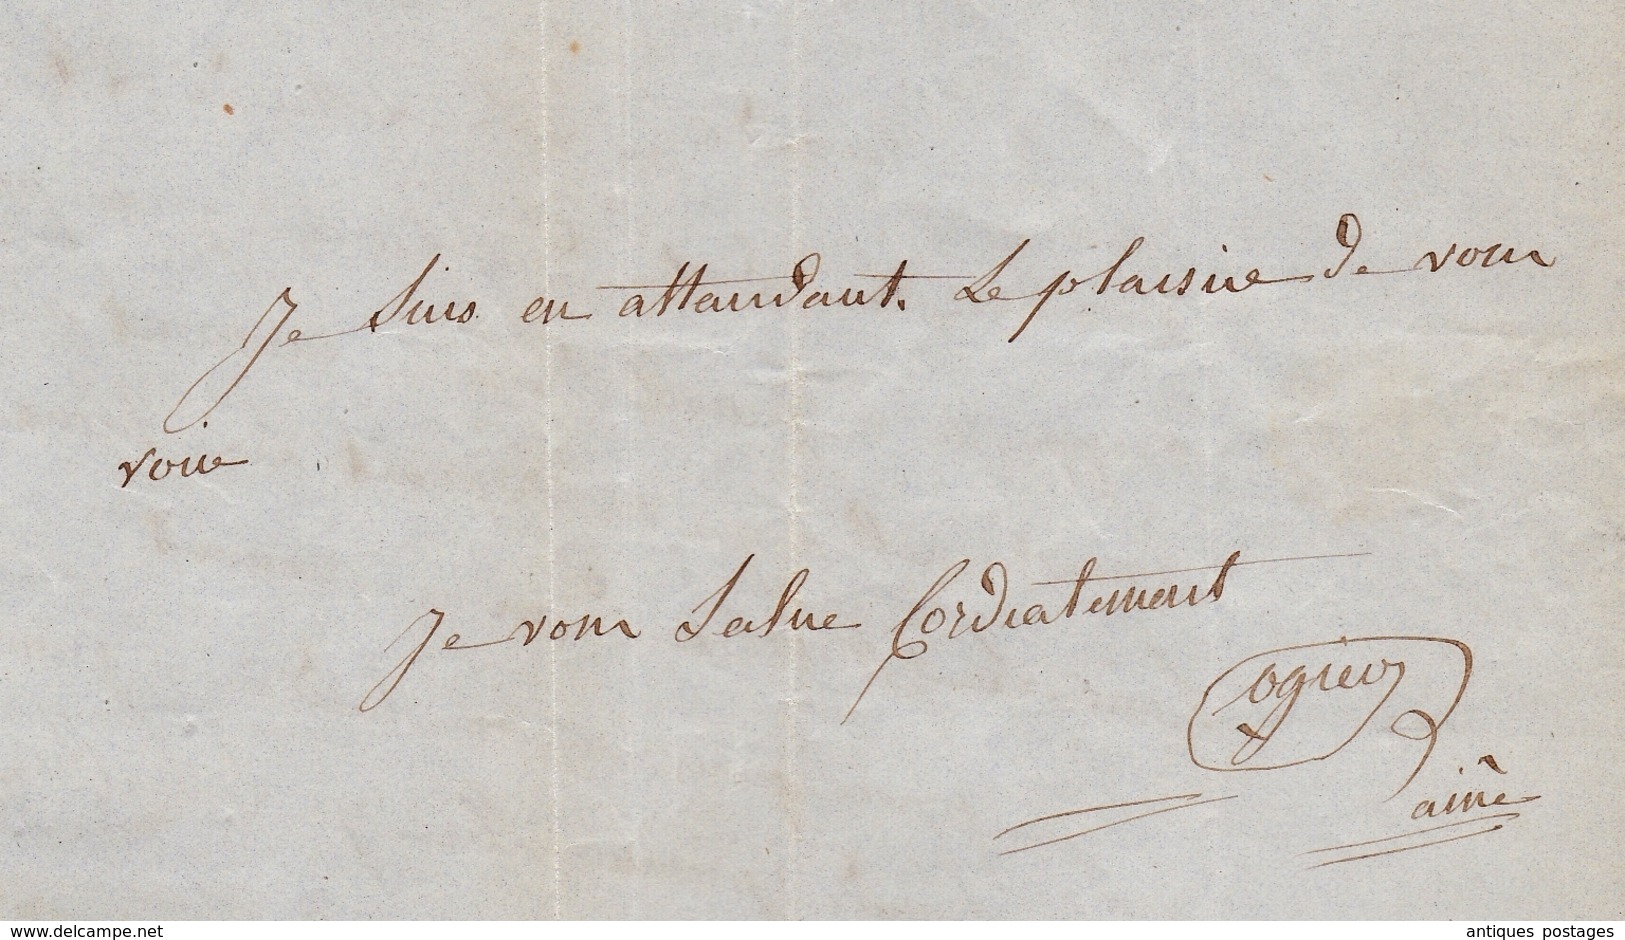 Je suis en attandant. Le plaisir de vous
voir
Je vous Salue Cordialement
ogier
ainé
www.delcampe.net
antiques postages